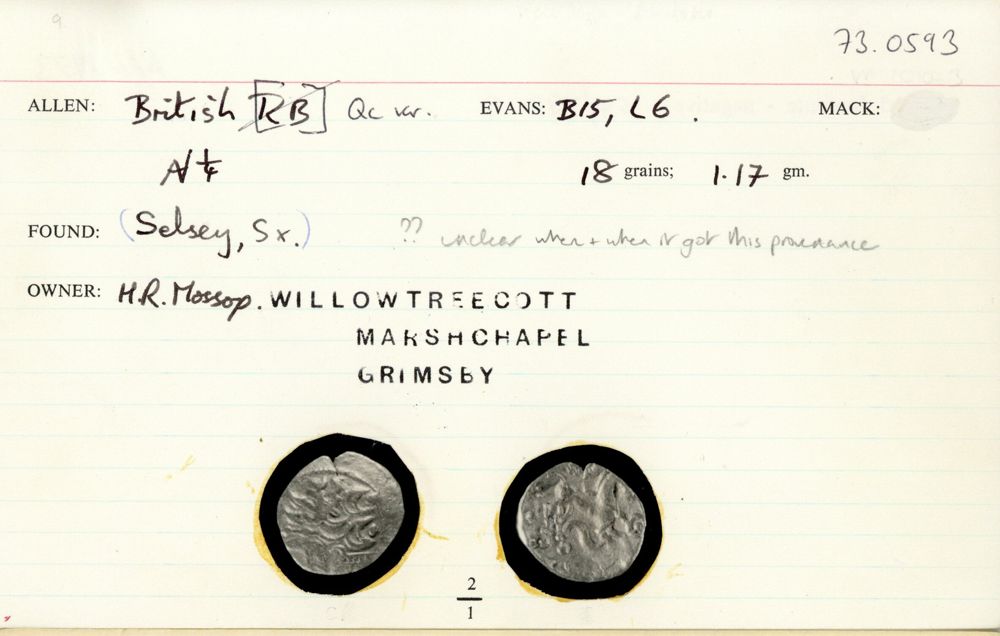 73.0593
ALLEN: British [RB] Qc var. EVANS: B15, L6. MACK:
A/ ¼ 18 grains; 1.17 gm.
FOUND: (Selsey, Sx.) ?? unclear when + when it got this provenance
OWNER: H.R. Mossop. WILLOWTREECOTT
MARSHCHAPEL
GRIMSBY
2
1